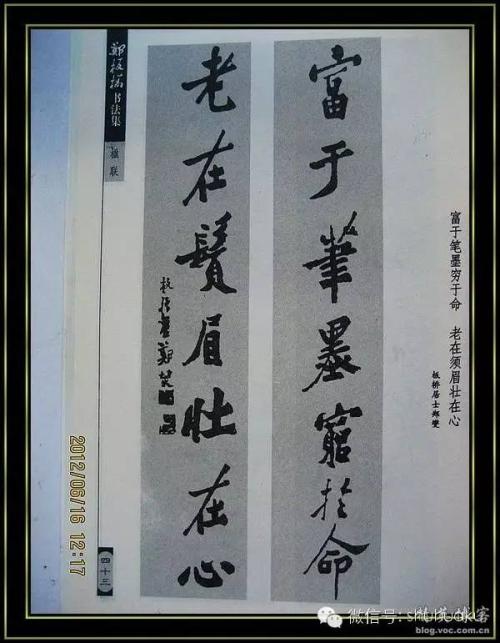 富于筆墨窮於命
老在鬚眉壯在心
板橋居士鄭燮
富于笔墨穷于命　老在须眉壮在心
板桥居士郑燮
鄭板橋书法集
楹联
四十三
2012/06/16 12:17
微信号:
blog.voc.com.cn